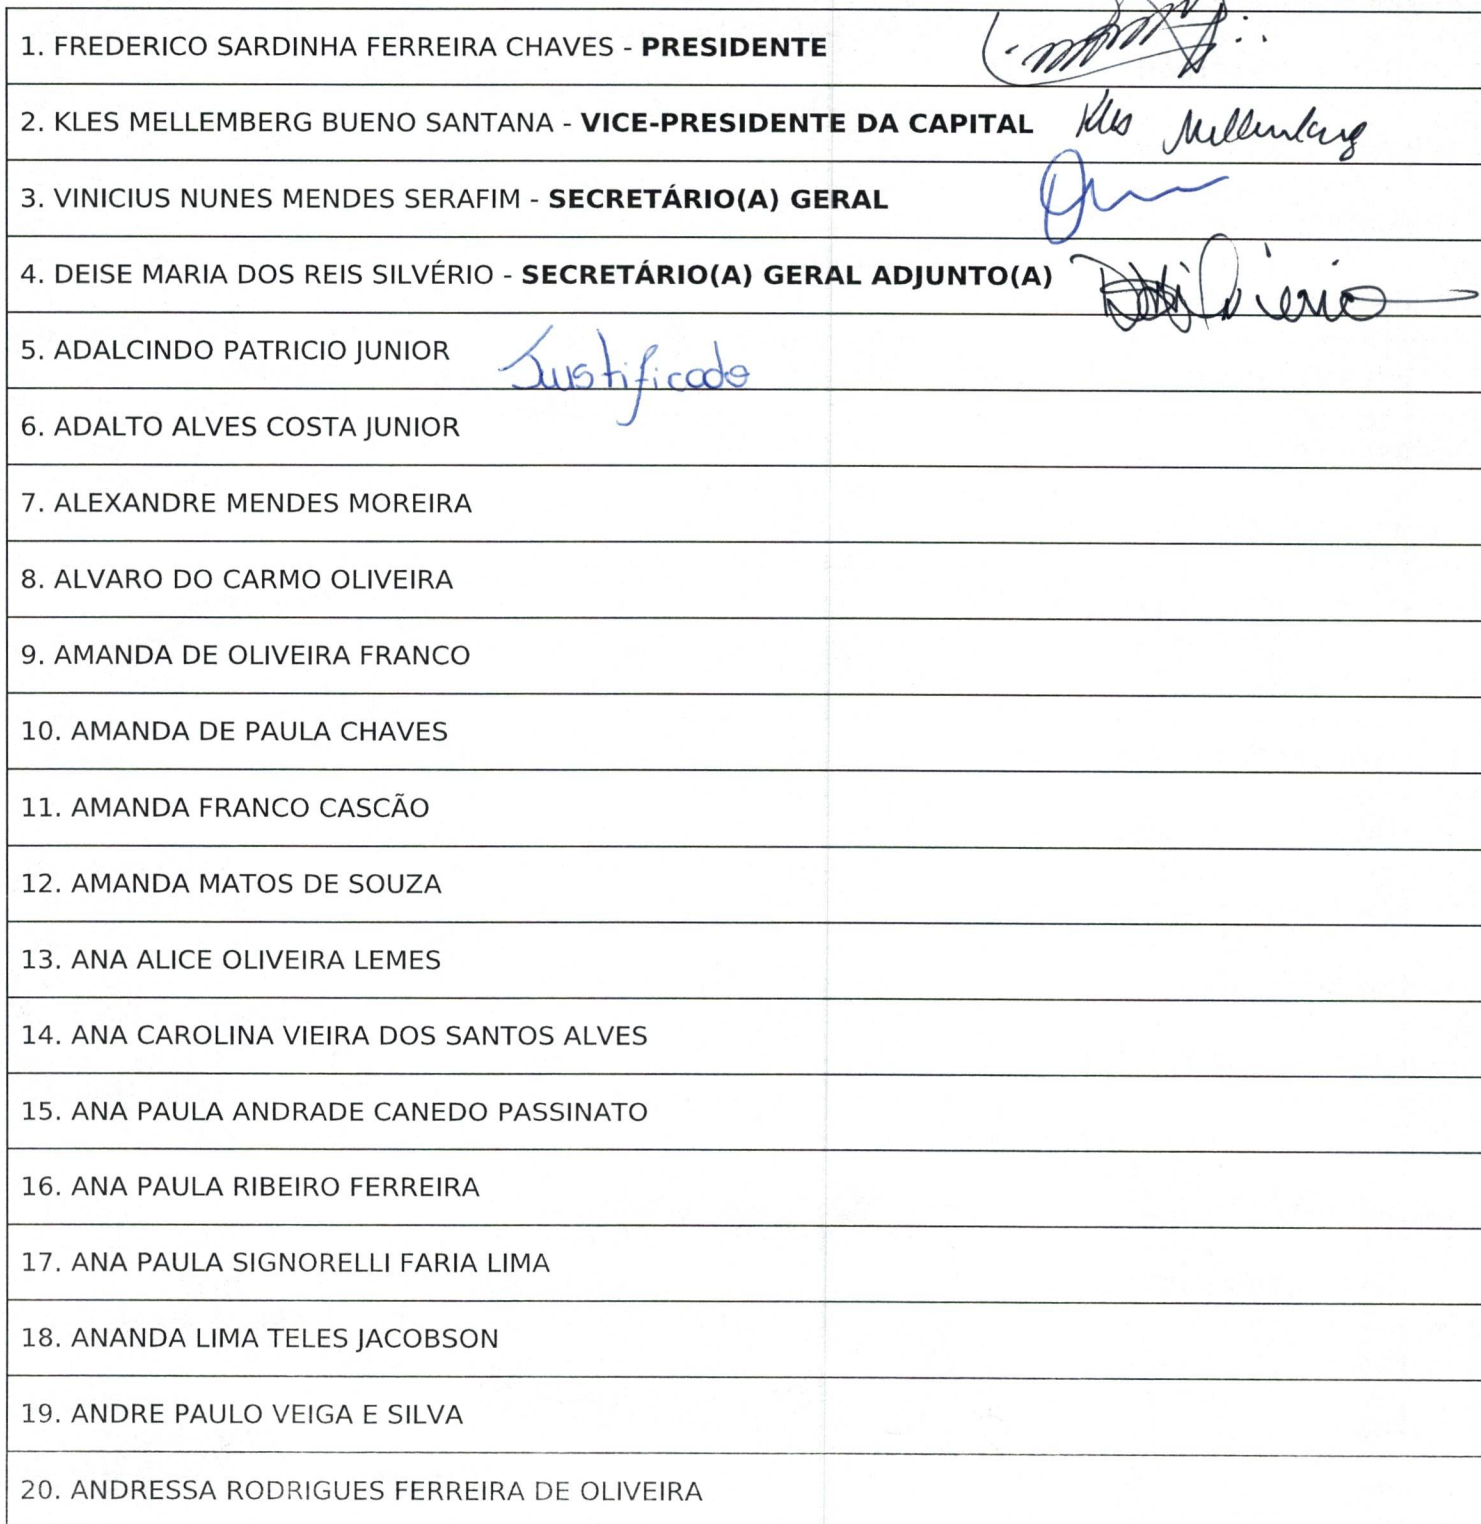 1. FREDERICO SARDINHA FERREIRA CHAVES - PRESIDENTE
2. KLES MELLEMBERG BUENO SANTANA - VICE-PRESIDENTE DA CAPITAL Kles Mellemberg
3. VINICIUS NUNES MENDES SERAFIM - SECRETÁRIO(A) GERAL
4. DEISE MARIA DOS REIS SILVÉRIO - SECRETÁRIO(A) GERAL ADJUNTO(A)
5. ADALCINDO PATRICIO JUNIOR Justificado
6. ADALTO ALVES COSTA JUNIOR
7. ALEXANDRE MENDES MOREIRA
8. ALVARO DO CARMO OLIVEIRA
9. AMANDA DE OLIVEIRA FRANCO
10. AMANDA DE PAULA CHAVES
11. AMANDA FRANCO CASCÃO
12. AMANDA MATOS DE SOUZA
13. ANA ALICE OLIVEIRA LEMES
14. ANA CAROLINA VIEIRA DOS SANTOS ALVES
15. ANA PAULA ANDRADE CANEDO PASSINATO
16. ANA PAULA RIBEIRO FERREIRA
17. ANA PAULA SIGNORELLI FARIA LIMA
18. ANANDA LIMA TELES JACOBSON
19. ANDRE PAULO VEIGA E SILVA
20. ANDRESSA RODRIGUES FERREIRA DE OLIVEIRA